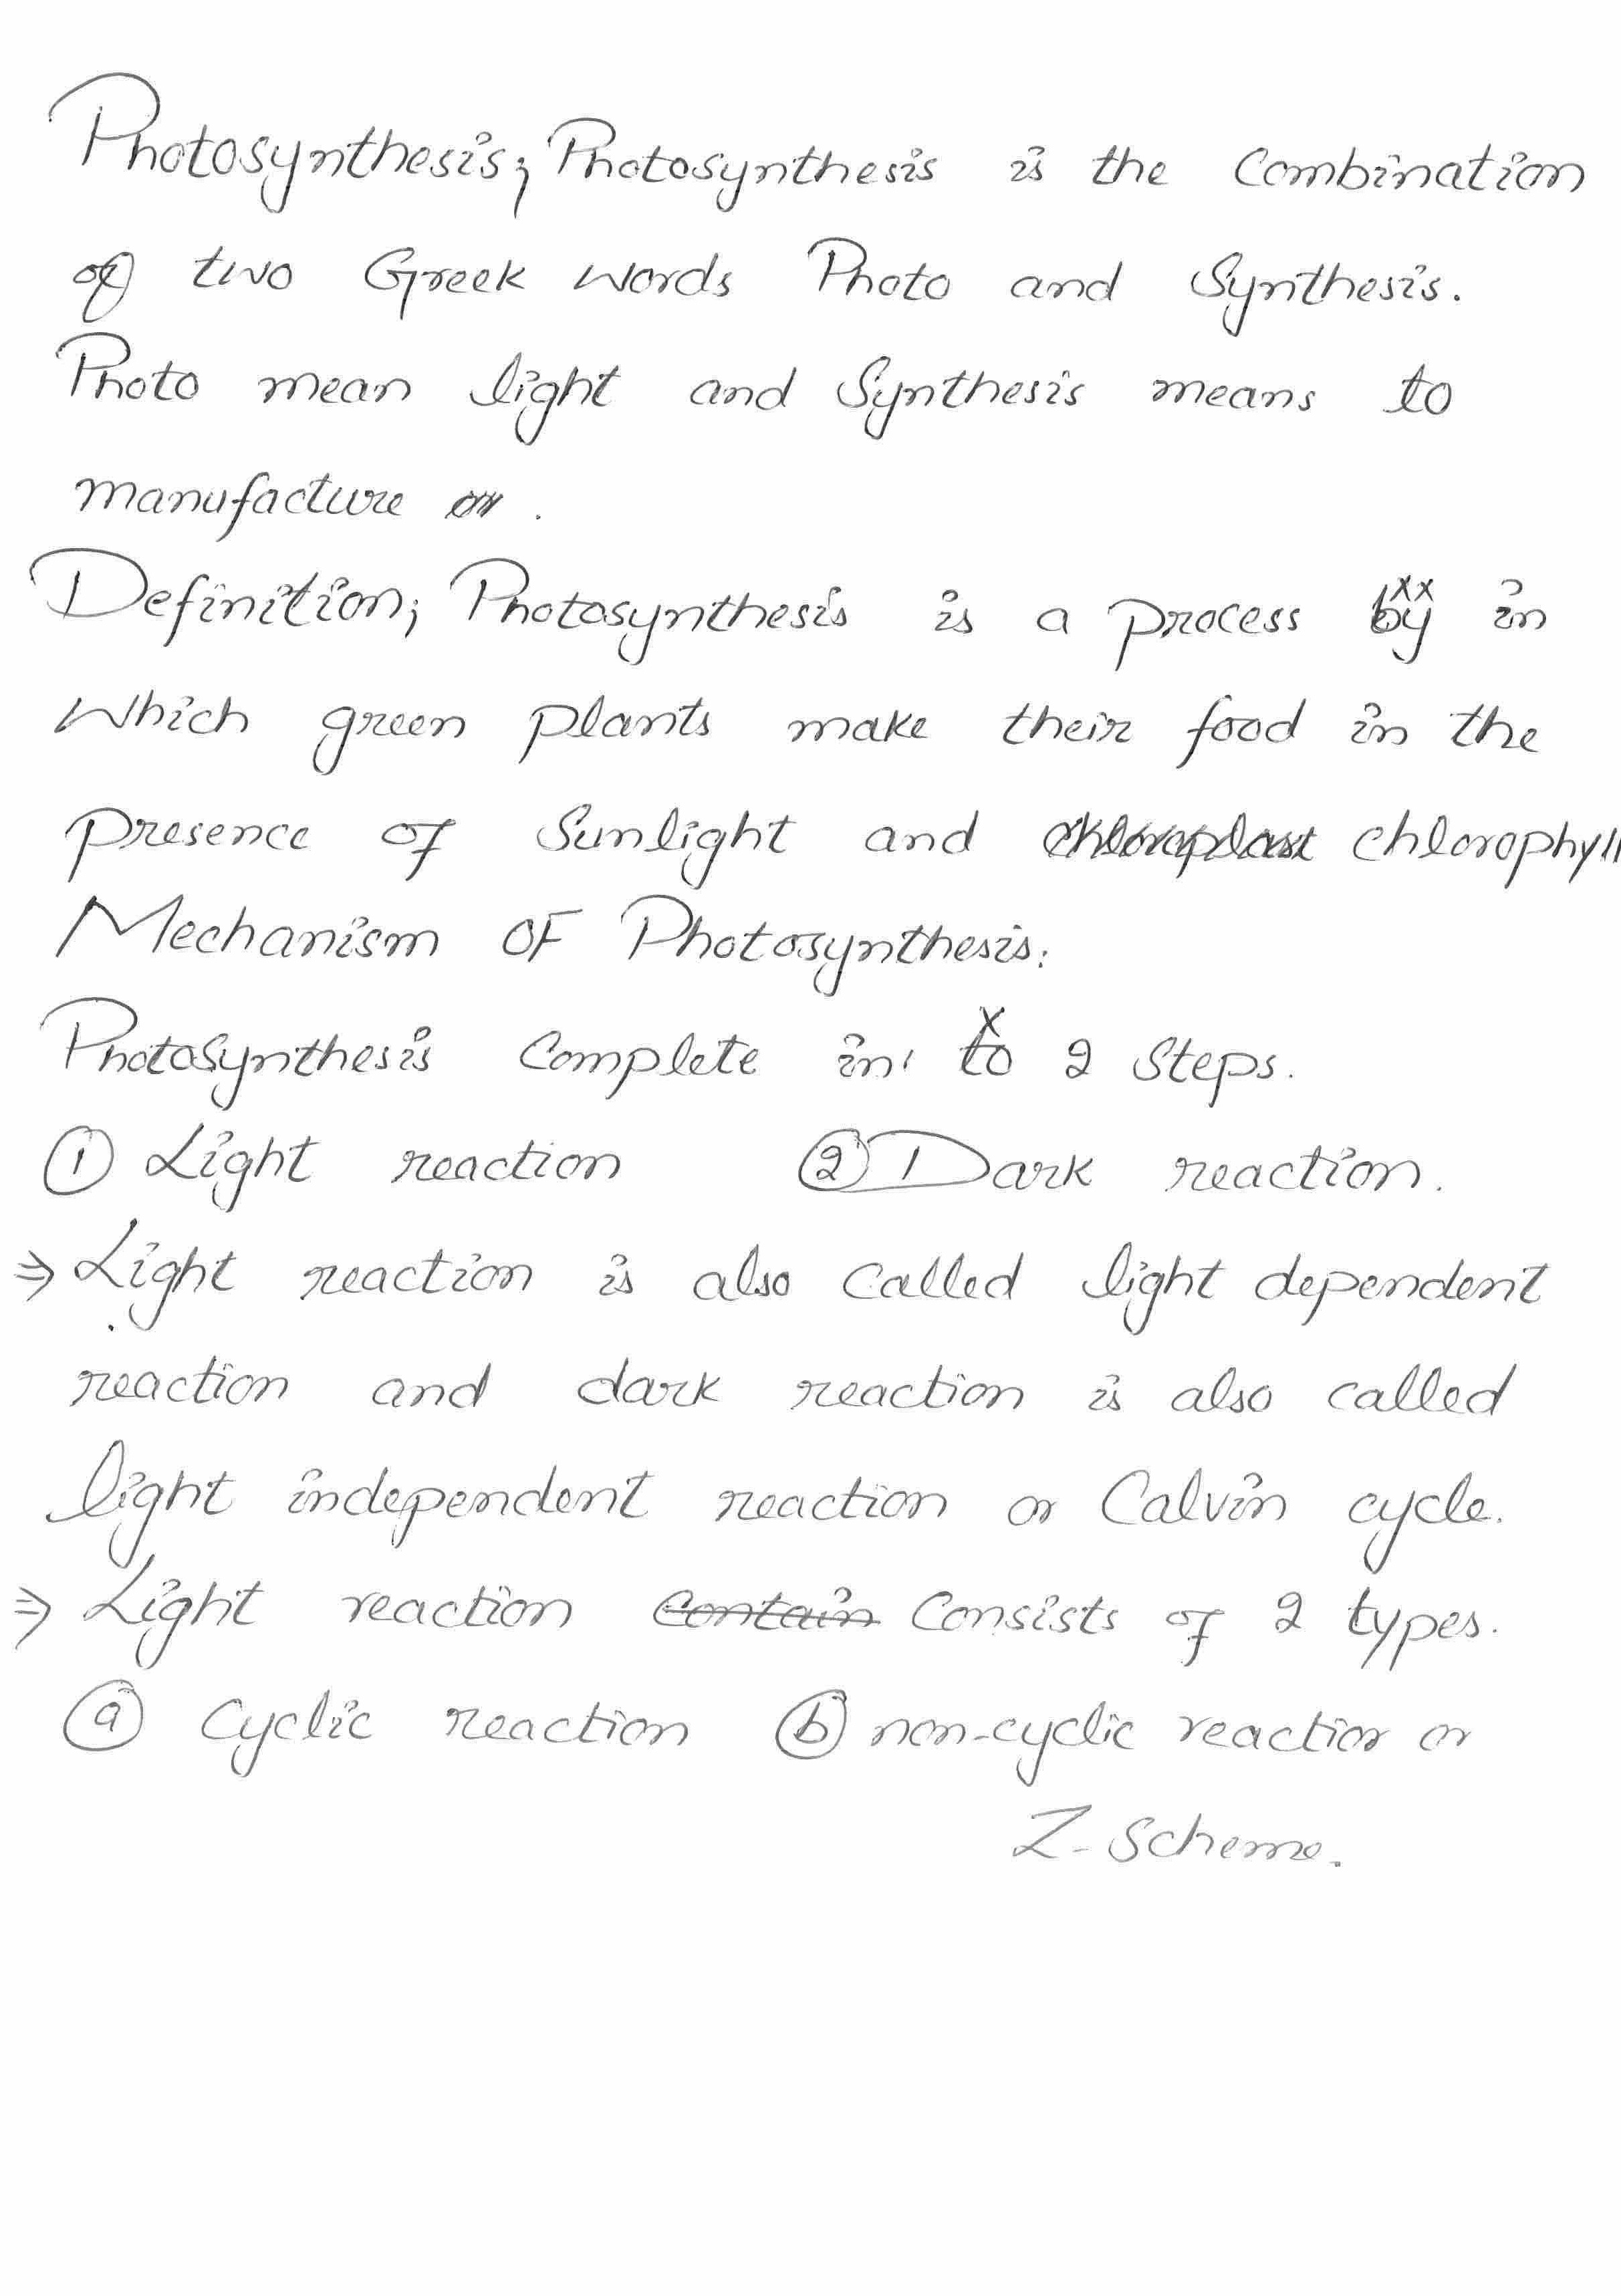 Photosynthesis; Photosynthesis is the Combination
of two Greek words Photo and Synthesis.
Photo mean light and Synthesis means to
manufacture or .
Definition; Photosynthesis is a process by in
which green plants make their food in the
presence of Sunlight and chloroplast chlorophyll
Mechanism OF Photosynthesis:
Photosynthesis Complete in to 2 Steps.
① Light reaction ② Dark reaction.
⇒ Light reaction is also Called light dependent
reaction and dark reaction is also called
light independent reaction or Calvin cycle.
⇒ Light reaction contain Consists of 2 types.
ⓐ Cyclic reaction ⓑ non-cyclic reaction or
Z-Scheme.